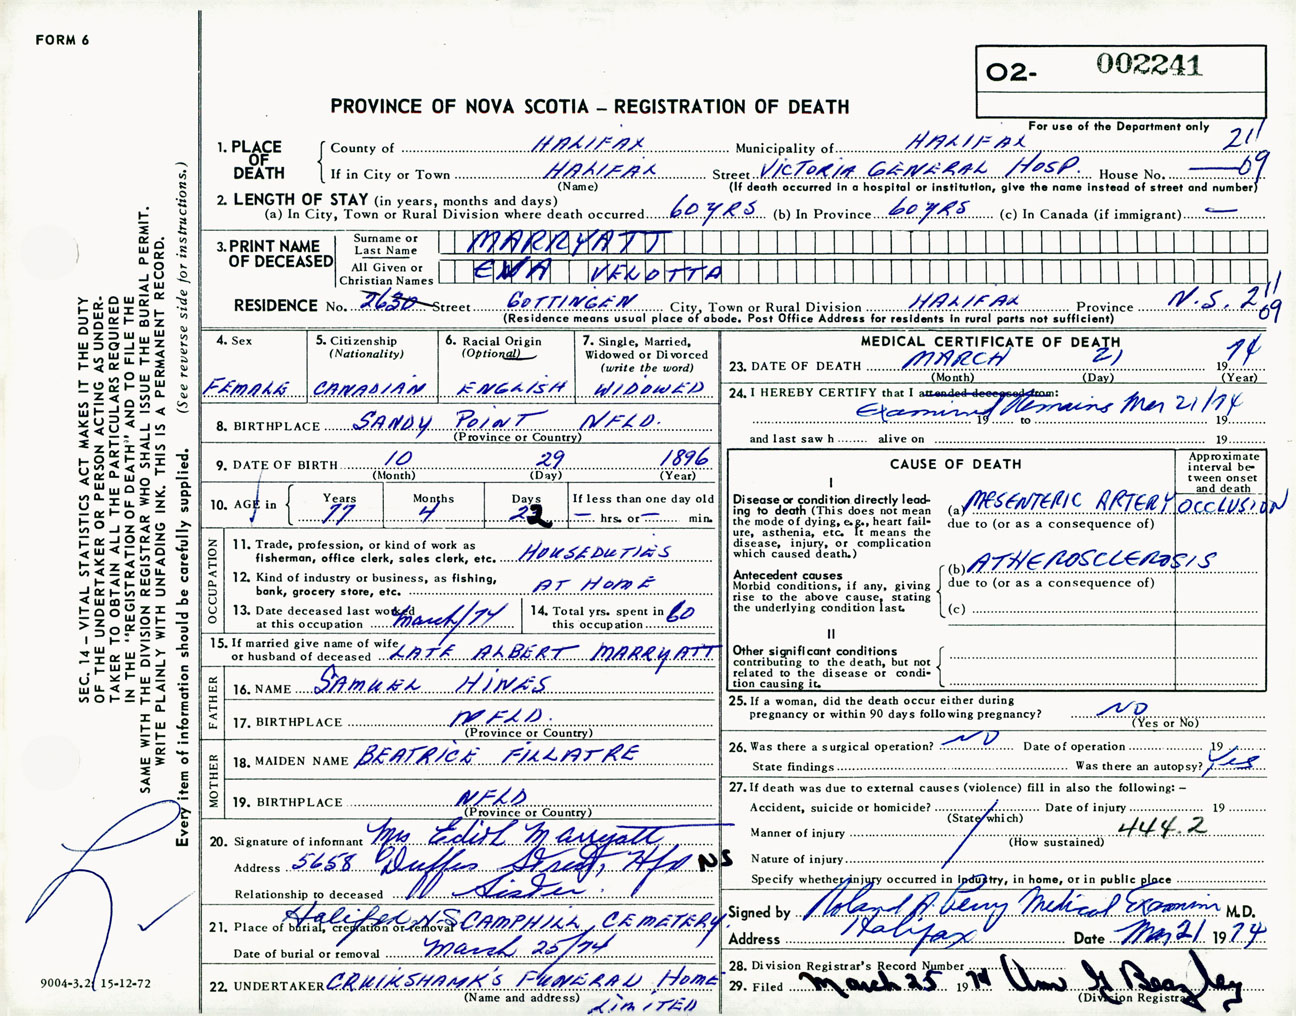 FORM 6
O2- 002241
PROVINCE OF NOVA SCOTIA – REGISTRATION OF DEATH
For use of the Department only
1. PLACE OF DEATH
County of HALIFAX Municipality of HALIFAX 211
If in City or Town HALIFAX Street VICTORIA GENERAL HOSP. House No. — 09
(Name) (If death occurred in a hospital or institution, give the name instead of street and number)
2. LENGTH OF STAY (in years, months and days)
(a) In City, Town or Rural Division where death occurred 60 YRS (b) In Province 60 YRS (c) In Canada (if immigrant) —
3. PRINT NAME OF DECEASED
Surname or Last Name MARRYATT
All Given or Christian Names ENA VELOTTA
RESIDENCE No. 2630 Street GOTTINGEN City, Town or Rural Division HALIFAX Province N.S. 211 09
(Residence means usual place of abode. Post Office Address for residents in rural parts not sufficient)
4. Sex
FEMALE
5. Citizenship (Nationality)
CANADIAN
6. Racial Origin (Optional)
ENGLISH
7. Single, Married, Widowed or Divorced (write the word)
WIDOWED
8. BIRTHPLACE SANDY POINT NFLD.
(Province or Country)
9. DATE OF BIRTH 10 29 1896
(Month) (Day) (Year)
10. AGE in Years Months Days If less than one day old
77 4 22 — hrs. or — min.
OCCUPATION
11. Trade, profession, or kind of work as fisherman, office clerk, sales clerk, etc. HOUSEDUTIES
12. Kind of industry or business, as fishing, bank, grocery store, etc. AT HOME
13. Date deceased last worked at this occupation March/74
14. Total yrs. spent in this occupation 60
15. If married give name of wife or husband of deceased LATE ALBERT MARRYATT
FATHER
16. NAME SAMUEL HINES
17. BIRTHPLACE NFLD.
(Province or Country)
MOTHER
18. MAIDEN NAME BEATRICE FILLATRE
19. BIRTHPLACE NFLD
(Province or Country)
20. Signature of informant Mrs Edith Marryatt
Address 5658 Duffus Street, Hfx NS
Relationship to deceased Sister
21. Place of burial, cremation or removal Halifax N.S. CAMPHILL CEMETERY
Date of burial or removal March 25/74
22. UNDERTAKER CRUIKSHANK'S FUNERAL HOME
(Name and address) LIMITED
MEDICAL CERTIFICATE OF DEATH
23. DATE OF DEATH MARCH 21 1974
(Month) (Day) (Year)
24. I HEREBY CERTIFY that I attended deceased from:
Examined Remains Mar 21/74
19 to 19
and last saw h alive on 19
CAUSE OF DEATH
Approximate interval between onset and death
I
Disease or condition directly leading to death (This does not mean the mode of dying, e.g., heart failure, asthenia, etc. It means the disease, injury, or complication which caused death.)
(a) MESENTERIC ARTERY OCCLUSION
due to (or as a consequence of)
Antecedent causes
Morbid conditions, if any, giving rise to the above cause, stating the underlying condition last.
(b) ATHEROSCLEROSIS
due to (or as a consequence of)
(c)
II
Other significant conditions
contributing to the death, but not related to the disease or condition causing it.
25. If a woman, did the death occur either during pregnancy or within 90 days following pregnancy? NO
(Yes or No)
26. Was there a surgical operation? NO Date of operation 19
State findings Was there an autopsy? Yes
27. If death was due to external causes (violence) fill in also the following: –
Accident, suicide or homicide? Date of injury 19
(State which)
Manner of injury 444.2
(How sustained)
Nature of injury
Specify whether injury occurred in industry, in home, or in public place
Signed by Roland A. Perry Medical Examiner M.D.
Address Halifax Date Mar 21 1974
28. Division Registrar's Record Number
29. Filed March 25 1974
(Division Registrar)
SEC. 14 – VITAL STATISTICS ACT MAKES IT THE DUTY
OF THE UNDERTAKER OR PERSON ACTING AS UNDER-
TAKER TO OBTAIN ALL THE PARTICULARS REQUIRED
IN THE "REGISTRATION OF DEATH" AND TO FILE THE
SAME WITH THE DIVISION REGISTRAR WHO SHALL ISSUE THE BURIAL PERMIT.
WRITE PLAINLY WITH UNFADING INK. THIS IS A PERMANENT RECORD.
Every item of information should be carefully supplied. (See reverse side for instructions.)
9004-3.2 15-12-72